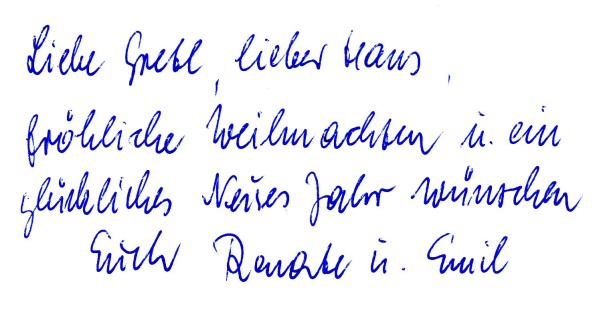 Liebe Gretl, lieber Hans,
fröhliche Weihnachten u. ein
glückliches Neues Jahr wünschen
Euch Renate u. Emil